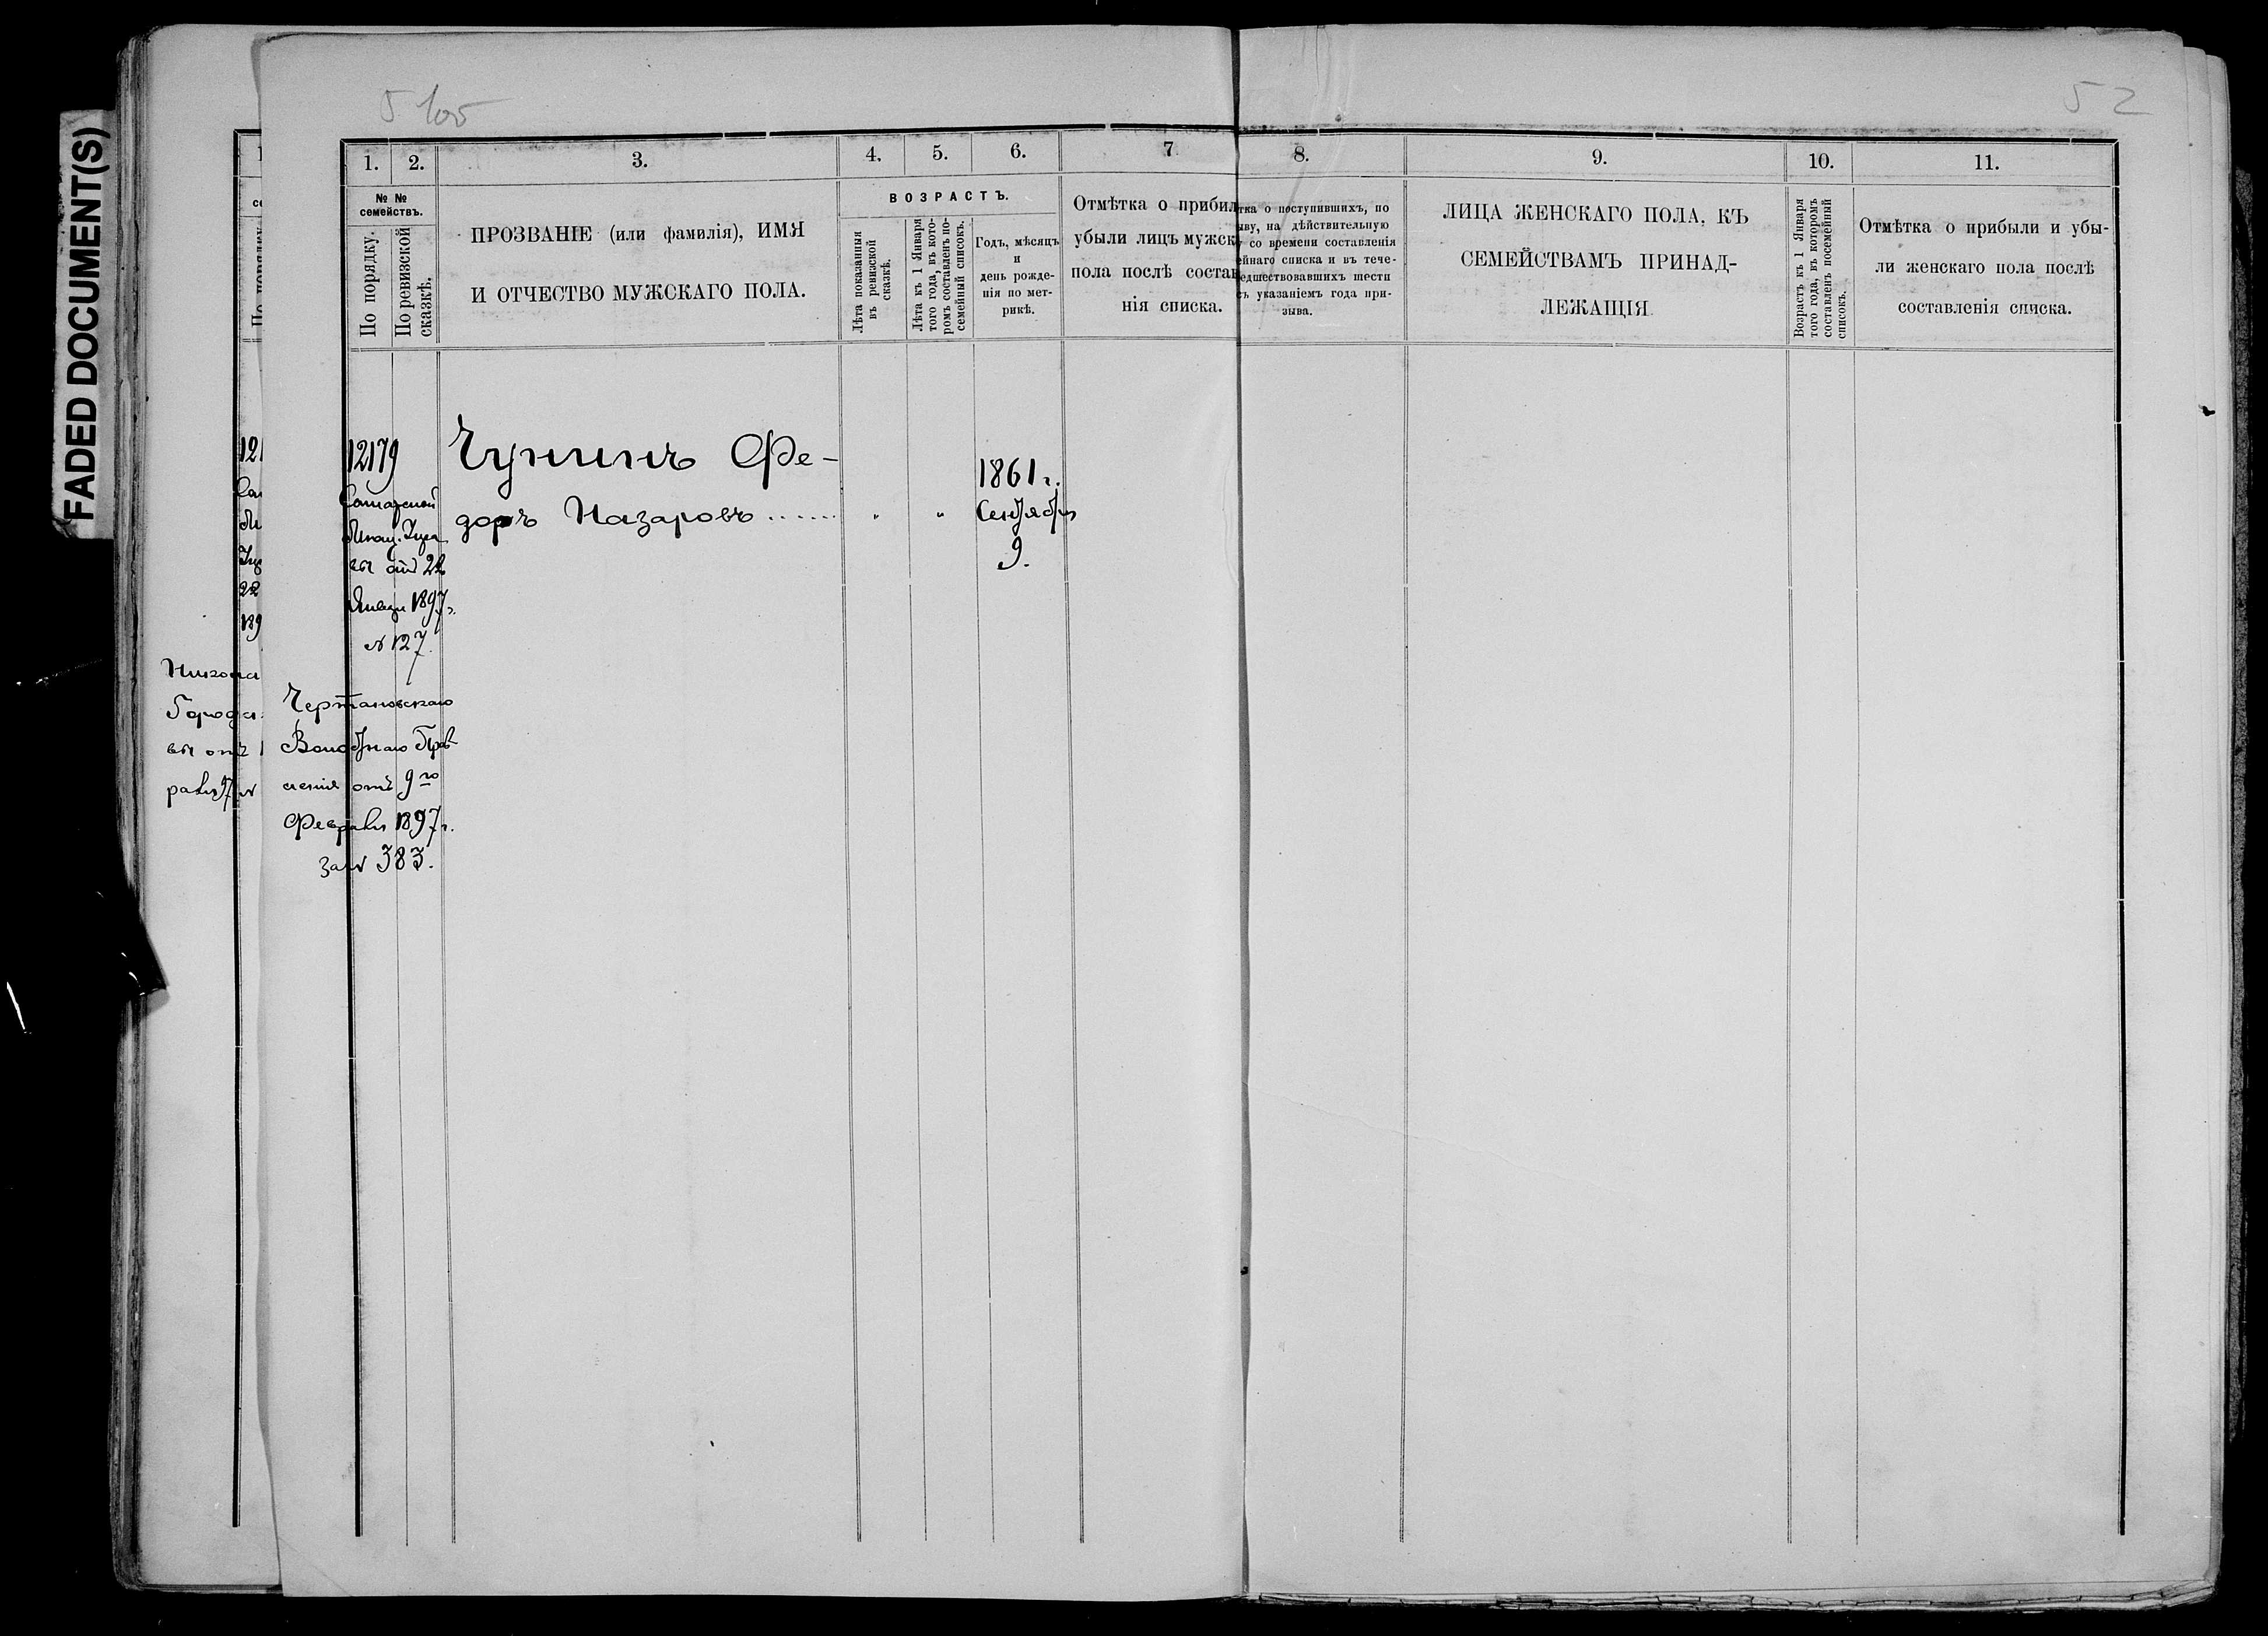 FADED DOCUMENT(S)
5 105
52
1.
2.
3.
4.
5.
6.
7
8.
9.
10.
11.
№ №
семействъ.
По порядку.
По ревизской
сказкѣ.
ПРОЗВАНІЕ (или фамилія), ИМЯ
И ОТЧЕСТВО МУЖСКАГО ПОЛА.
ВОЗРАСТЪ.
Лѣта показанныя
въ ревизской
сказкѣ.
Лѣта къ 1 Января
того года, въ кото-
ромъ составленъ по-
семейный списокъ.
Годъ, мѣсяцъ
и
день рожде-
нія по мет-
рикѣ.
Отмѣтка о прибыл
убыли лицъ мужск
пола послѣ состав
нія списка.
тка о поступившихъ, по
ыву, на дѣйствительную
со времени составленія
ейнаго списка и въ тече-
едшествовавшихъ шести
съ указаніемъ года при-
зыва.
ЛИЦА ЖЕНСКАГО ПОЛА, КЪ
СЕМЕЙСТВАМЪ ПРИНАД-
ЛЕЖАЩІЯ
Возрастъ къ 1 Января
того года, въ которомъ
составленъ посемейный
списокъ.
Отмѣтка о прибыли и убы-
ли женскаго пола послѣ
составленія списка.
12179
Самарской
Мѣщ. Упра
вы отъ 22
Января 1897 г.
№ 127.
Чертановскаго
Волостнаго Прав
ленія отъ 9го
Февраля 1897 г.
за № 383.
Чунинъ Фе-
доръ Назаровъ ......
"
"
1861 г.
Сентября
9.
121
22
189
Никола
Городск
вы отъ 1
раля 97 №